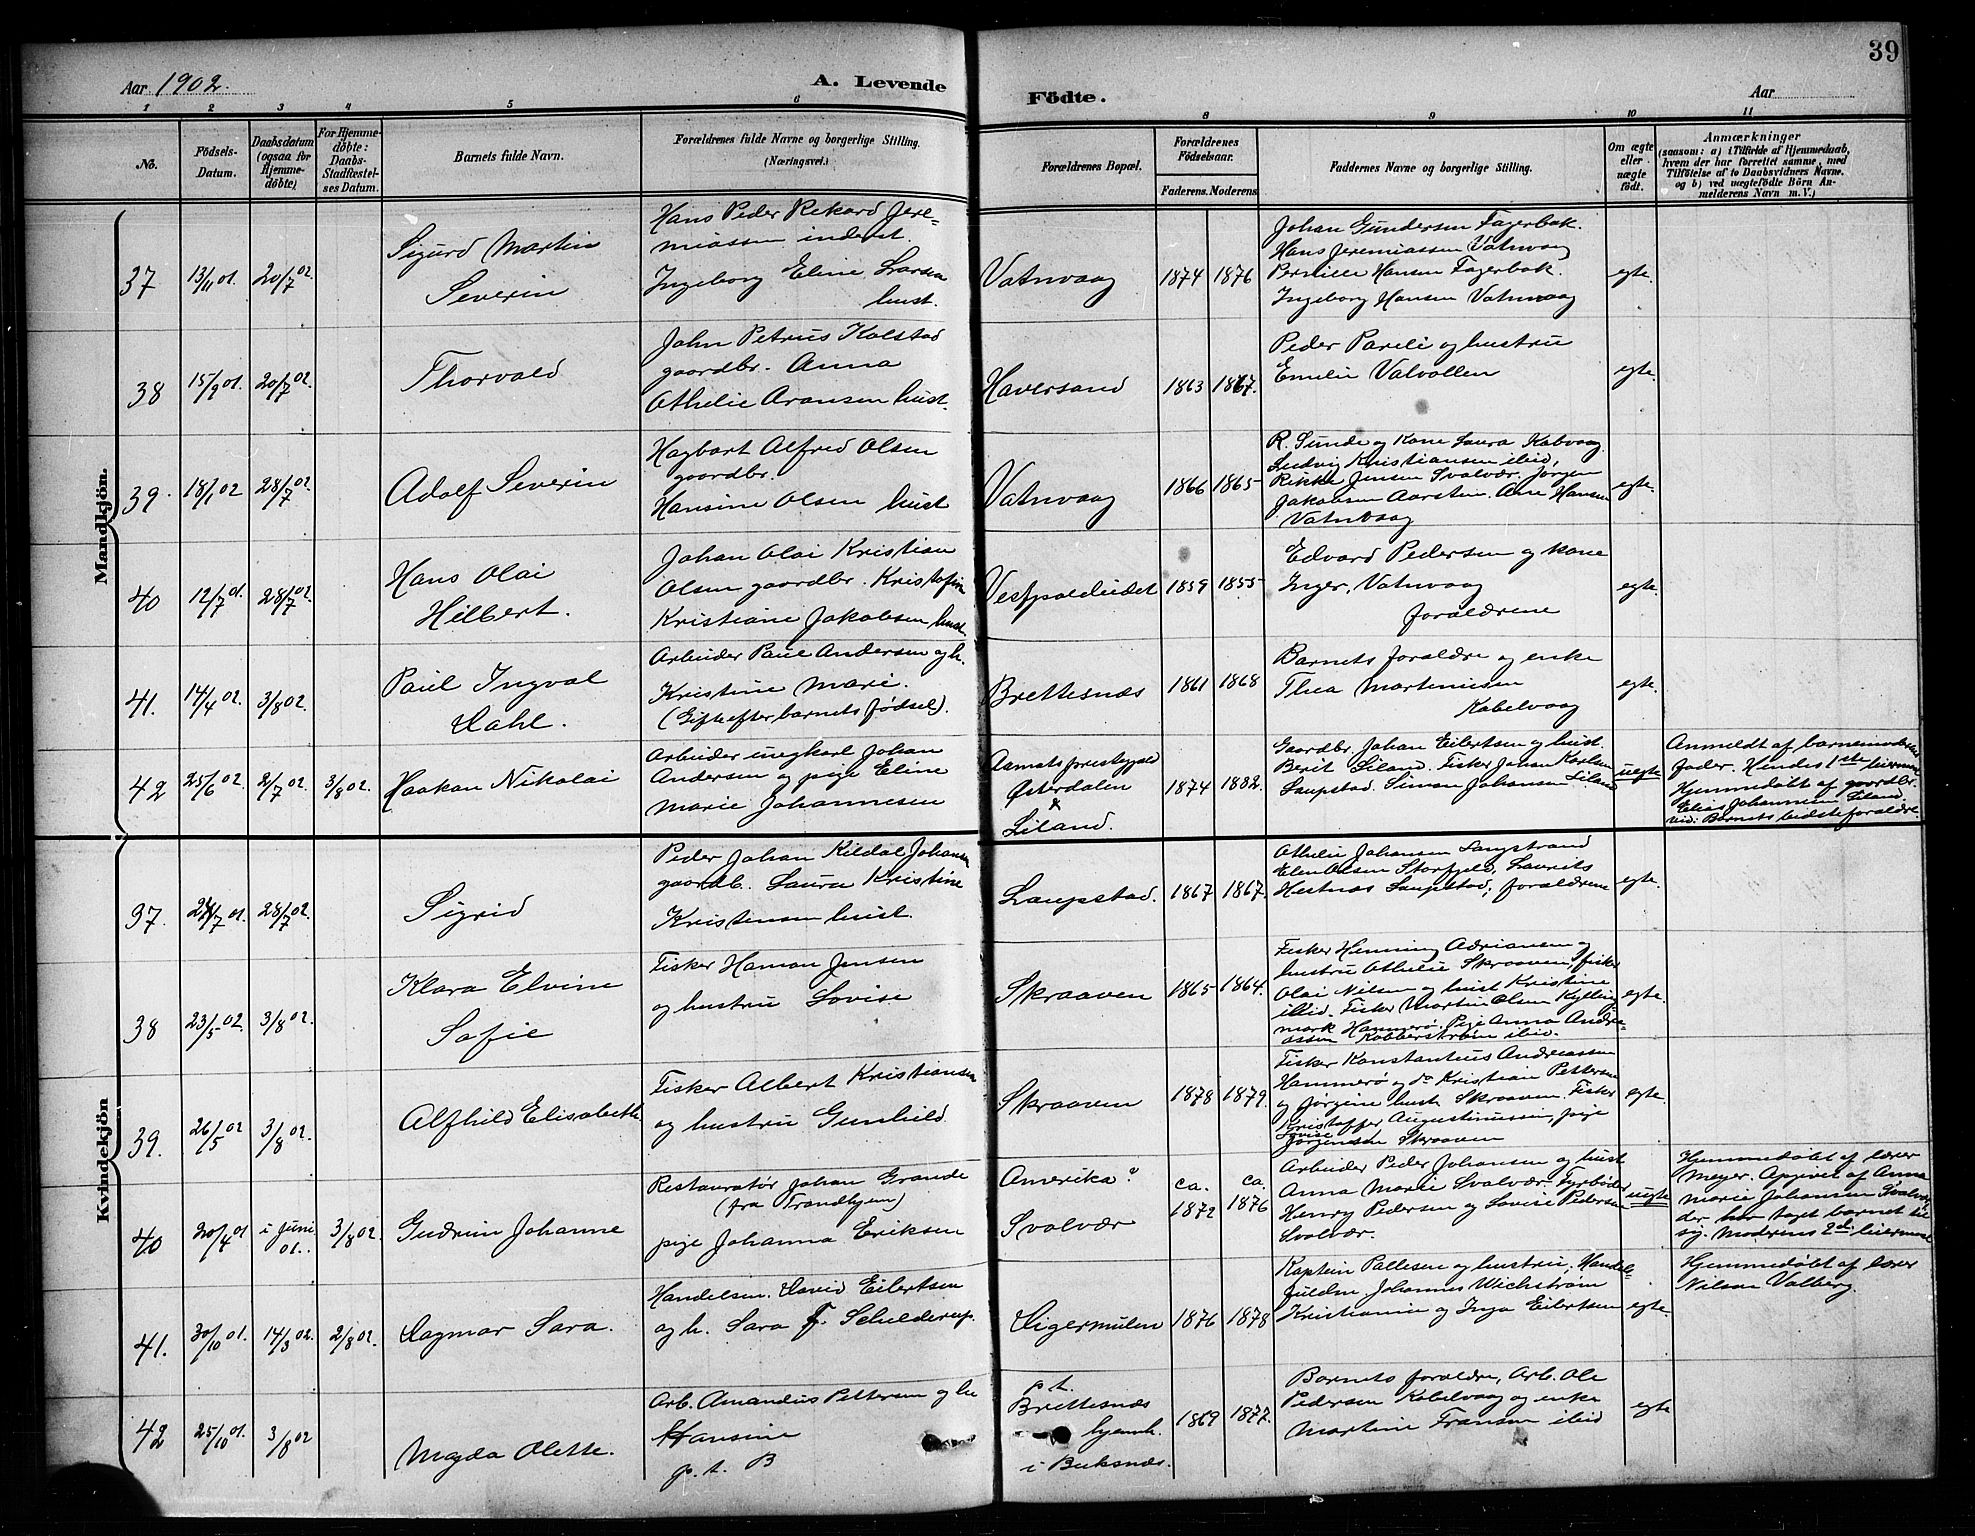 39
Aar 1902.
A. Levende
Födte.
Aar
1 2 3 4 5 6 8 9 10 11
Nö.
Födsels-
Datum.
Daabsdatum
(ogsaa for
Hjemme-
döbte)
For Hjemme-
döbte:
Daabs-
Stadfæstel-
ses Datum.
Barnets fulde Navn.
Forældrenes fulde Navne og borgerlige Stilling.
(Næringsvei.)
Forældrenes Bopæl.
Forældrenes
Födselsaar.
Faderens. Moderens
Faddernes Navne og borgerlige Stilling.
Om ægte
eller
uægte
födt.
Anmærkninger
(saasom: a) i Tilfælde af Hjemmedaab,
hvem der har forrettet samme, med
Tilföielse af to Daabsvidners Navne.
og b) ved uægtefödte Börn An-
melderens Navn m. V.)
Mandkjön.
37
13/11 01.
20/7 02.
Sigurd Martin
Severin
Hans Peder Rikard Jere-
miassen inderst.
Ingeborg Eline Larsen
hust.
Vatnvaag
1874
1876
Johan Gundersen Fagerbak.
Hans Jeremiassen Vatnvaag
Pernille Hansen Fagerbak.
Ingeborg Hansen Vatnvaag
egte.
38
15/9 01.
20/7 02.
Thorvald
John Petrus Kolstad
gaardbr. Anna
Othelie Aronsen hust.
Haversand
1863
1867.
Peder Pareli og hustru
Emelie Valvollen
egte.
39.
18/1 02
28/7 02.
Adolf Severin
Hagbart Alfred Olsen
gaardbr.
Hansine Olsen hust
Vatnvaag
1866
1865
R. Sunde og Kone Laura Kabvaag
Ludvig Kristiansen ibid,
Rikke Jensen Svolvær, Jørgen
Jakobsen Aarsten. Ane Hansen
Vatnvaag
egte.
40
12/7 01.
28/7 02.
Hans Olai
Hilbert.
Johan Olai Kristian
Olsen gaardbr. Kristofine
Kristiane Jakobsen hust.
Vestpoldeidet
1859
1855
Edvard Pedersen og Kone
Inger, Vatnvaag
forældrene
egte.
41.
14/4 02.
3/8 02.
Paul Ingval
Dahl.
Arbeider Paul Andersen og h.
Kristine Marie.
(Gift efter barnets fødsel).
Brettesnæs
1861
1868
Barnets forældre og enke
Thea Martinusen
Kabelvaag
egte.
42
25/6 02.
2/7 02.
3/8 02.
Haakon Nikolai
Arbeider ungkarl Johan
Andersen og pige Eline
Marie Johannesen
Aamots præstegjeld
Østerdalen
&
Liland.
1874
1882.
Gaardbr. Johan Eilertsen og hust.
Berit Liland. Fisker Johan Karlsen
Laupstad. Simon Johansen Liland
uegte
Anmeldt af barnemoderens
fader. Hendes 1ste leiermaal
Hjemmedøbt af gaardbr.
Elias Johannesen Liland.
Vid: Barnets bedsteforældre.
Kvindekjön
37.
28/7 02.
Sigrid
Peder Johan Kildal Johansen
gaardb. Laura Kristine
Kristensen hust.
Laupstad.
1867
1867.
Othelie Johansen Langstrand
Elen Olsen Storfjeld, Laurits
Hestnæs Laupstad; forældrene
egte.
38
23/5 02.
3/8 02.
Klara Elvine
Sofie
Fisker Haman Jensen
og hustru Lovise
Skraaven
1865
1864.
Fisker Henning Adriansen og
hustru Othelie Skraaven, fisker
Olai Nilsen og hust Kristine
ibid. Fisker Martin Olsen Kylling-
mark Hammerø. Pige Anna Andre-
assen Kobberstrøm ibid.
egte.
39.
26/5 02
3/8 02.
Alfhild Elisabeth
Fisker Albert Kristiansen
og hustru Gunhild
Skraaven
1878
1879.
Fisker Konstantius Andreassen
Hammerø og do Kristian Pettersen
og Jørgine hust Skraaven. Fisker
Kristoffer Augustinussen, pige
Lovise
Jørgensen Skraaven
egte.
40
20/4 01
i juni
01.
3/8 02.
Gudrun Johanne
Restauratør Johan Grande
(fra Trondhjem)
pige Johanna Eriksen
Amerika?
Svolvær
ca.
1872
ca.
1876
Arbeider Peder Johansen og hust
Anna Marie Svolvær. Fyrbøder
Henry Pedersen og Lovise Pedersen
Svolvær.
uegte
Hjemmedøbt af lærer
Meyer. Opgivet af Anna
Marie Johansen Svolvær,
der har taget barnet til
sig. Moderens 2det leiermaal
41.
30/10 01.
14/3 02.
2/8 02.
Dagmar Sara.
Handelsm. David Eilertsen
og h. Sara F. Schelderup.
Digermulen
1876
1878
Kaptein Pallesen og hustru, Handels-
fuldm. Johannes Wichstrøm
Kristianie og Inga Eilertsen
egte.
Hjemmedøbt af lærer
Nilsen Valberg.
42
25/10 01.
3/8 02
Magda Olette.
Arb. Amandus Pettersen og hu
Hansine
p. t. B
p. t.
Brettesnæs
hjemh.
i Buksnæs.
1869
1877.
Barnets forældre, Arb. Ole
Pedersen Kabelvaag og enke
Martine Fransen ibid
egte